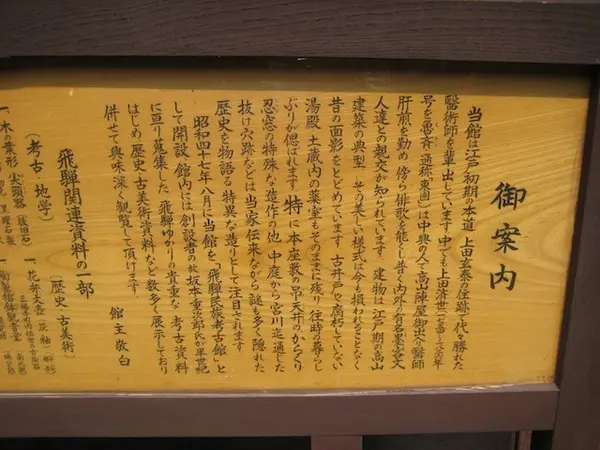 御案内
当館は江戸初期の本道 上田玄泰の住跡で代々勝れた
醫術師を輩出しています 中でも上田済世
号を魯斉 通称東圃 は中興の人で高山陣屋御出入醫師
肝煎を勤め 傍ら俳歌を能くし普く内外の有名墨客文
人達との親交が知られています 建物は江戸期の高山
建築の典型 その美しい様式は今も損われることなく
昔の面影をとどめています 古井戸や腐朽していない
湯殿 土蔵内の薬室もそのままに残り 往時の暮らし
ぶりが偲ばれます 特に本座敷の吊天井のからくり
忍窓の特殊な造作の他 中庭から宮川迄通した
抜け穴跡などは当家伝来ながら 謎も多く隠れた
歴史を物語る特異な造りとして注目されます
昭和四十七年八月に当館を 飛騨民族考古館 と
して開設 館内には創設者の故坂本重次郎氏が半世紀
に亘り蒐集した 飛騨ゆかりの貴重な 考古資料
はじめ 歴史 古美術資料など数多く展示しており
併せて興味深く観覧して頂けます
館主敬白
飛騨関連資料の一部
(考古・地学)
(歴史 古美術)
一、木の葉形 尖頭器
一、花弁文壺